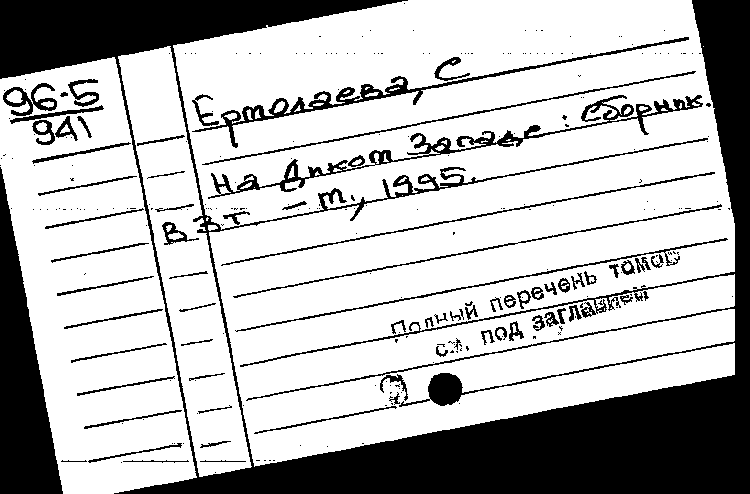 96-5
941
Ермолаева, С
На Диком Западе : Сборник.
В 3 т. – М., 1995.
Полный перечень томов
см. под заглавием